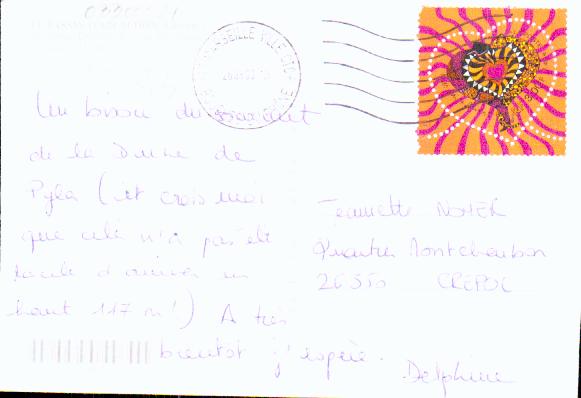 MARSEILLE VILLE
Un bisou du sommet
de la Dune de
Pyla (et crois moi
que cela n'a pas été
facile d'arriver en
haut 117 m!) A très
bientot j'espère.
Delphine
Jeannette
Quartier Montchardon
26350 CREPOL